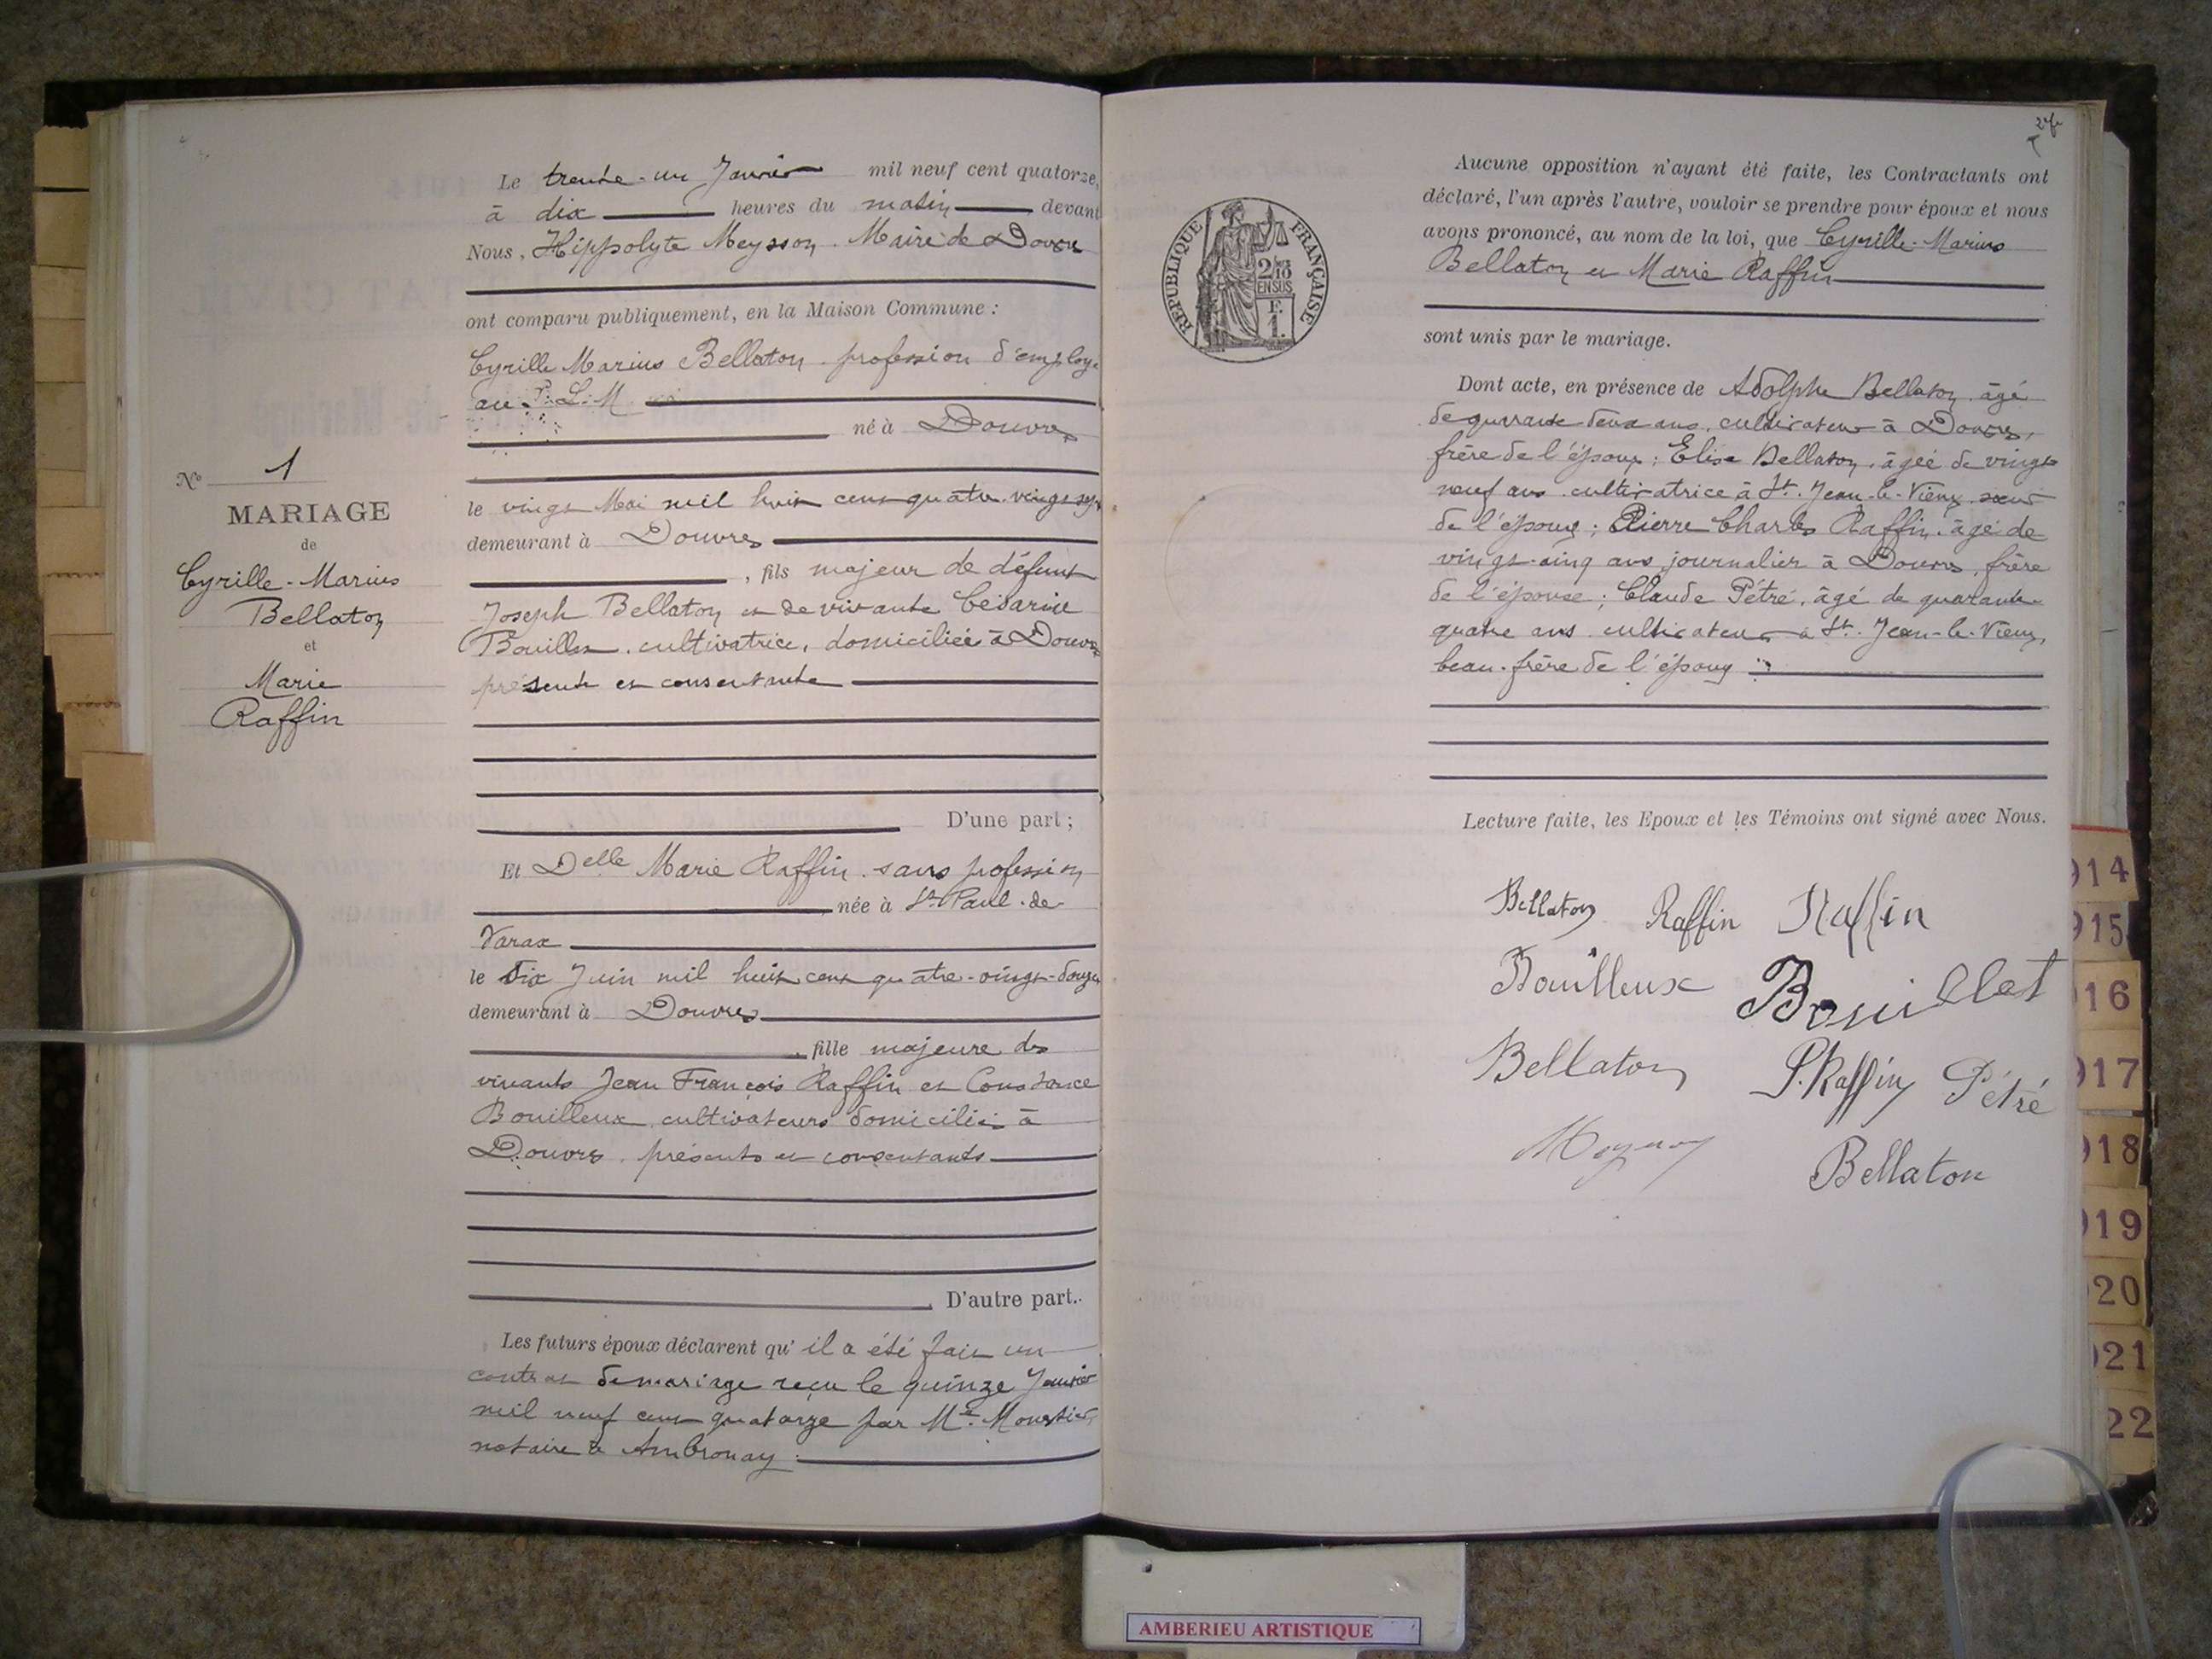 Le trente-un Janvier mil neuf cent quatorze,
à dix heures du matin devant
Nous, Hippolyte Meysson. Maire de Douvres
ont comparu publiquement, en la Maison Commune :
Cyrille Marius Bellaton profession d'employé
au P. L. M
né à Douvres
le vingt Mai mil huit cent quatre-vingt sept
demeurant à Douvres
, fils majeur de défunt
Joseph Bellaton et de vivante Césarine
Bouillet, cultivatrice, domiciliée à Douvres
présente et consentante
D'une part ;
Et Delle Marie Raffin sans profession
née à St Paul-de-
Varax
le dix Juin mil huit cent quatre-vingt-douze
demeurant à Douvres
, fille majeure des
vivants Jean François Raffin et Constance
Bouilleux cultivateurs domiciliés à
Douvres. présents et consentants
D'autre part.
Les futurs époux déclarent qu'il a été fait un
contrat de mariage reçu le quinze Janvier
mil neuf cent quatorze par Me. Monestier,
notaire à Ambronay.
No 1
MARIAGE
de
Cyrille-Marius
Bellaton
et
Marie
Raffin
REPUBLIQUE FRANÇAISE
2/10
EN SUS
F.
1.
Aucune opposition n'ayant été faite, les Contractants ont
déclaré, l'un après l'autre, vouloir se prendre pour époux et nous
avons prononcé, au nom de la loi, que Cyrille-Marius
Bellaton et Marie Raffin
sont unis par le mariage.
Dont acte, en présence de Adolphe Bellaton, âgé
de quarante deux ans, cultivateur à Douvres,
frère de l'époux; Elise Bellaton, âgée de vingt
neuf ans cultivatrice à St. Jean-le-Vieux sœur
de l'époux; Pierre Charles Raffin, âgé de
vingt-cinq ans, journalier à Douvres, frère
de l'épouse; Claude Pétré, âgé de quarante
quatre ans cultivateur à St. Jean-le-Vieux,
beau-frère de l'époux
Lecture faite, les Epoux et les Témoins ont signé avec Nous.
Bellaton Raffin Raffin
Bouilleux Bouillet
Bellaton P. Raffin Pétré
Meysson Bellaton
914
915
916
917
918
919
920
921
22
AMBERIEU ARTISTIQUE